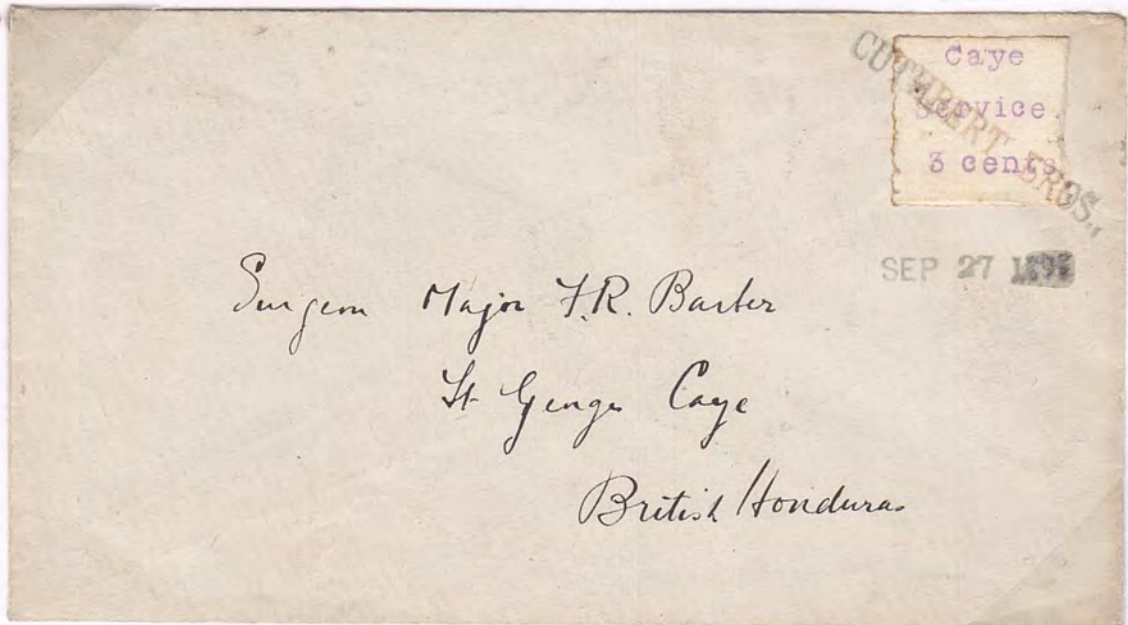 Caye
Service.
3 cents
CUTHBERT BROS.,
SEP 27 189
Surgeon Major F.R. Barter
St Georges Caye
British Honduras